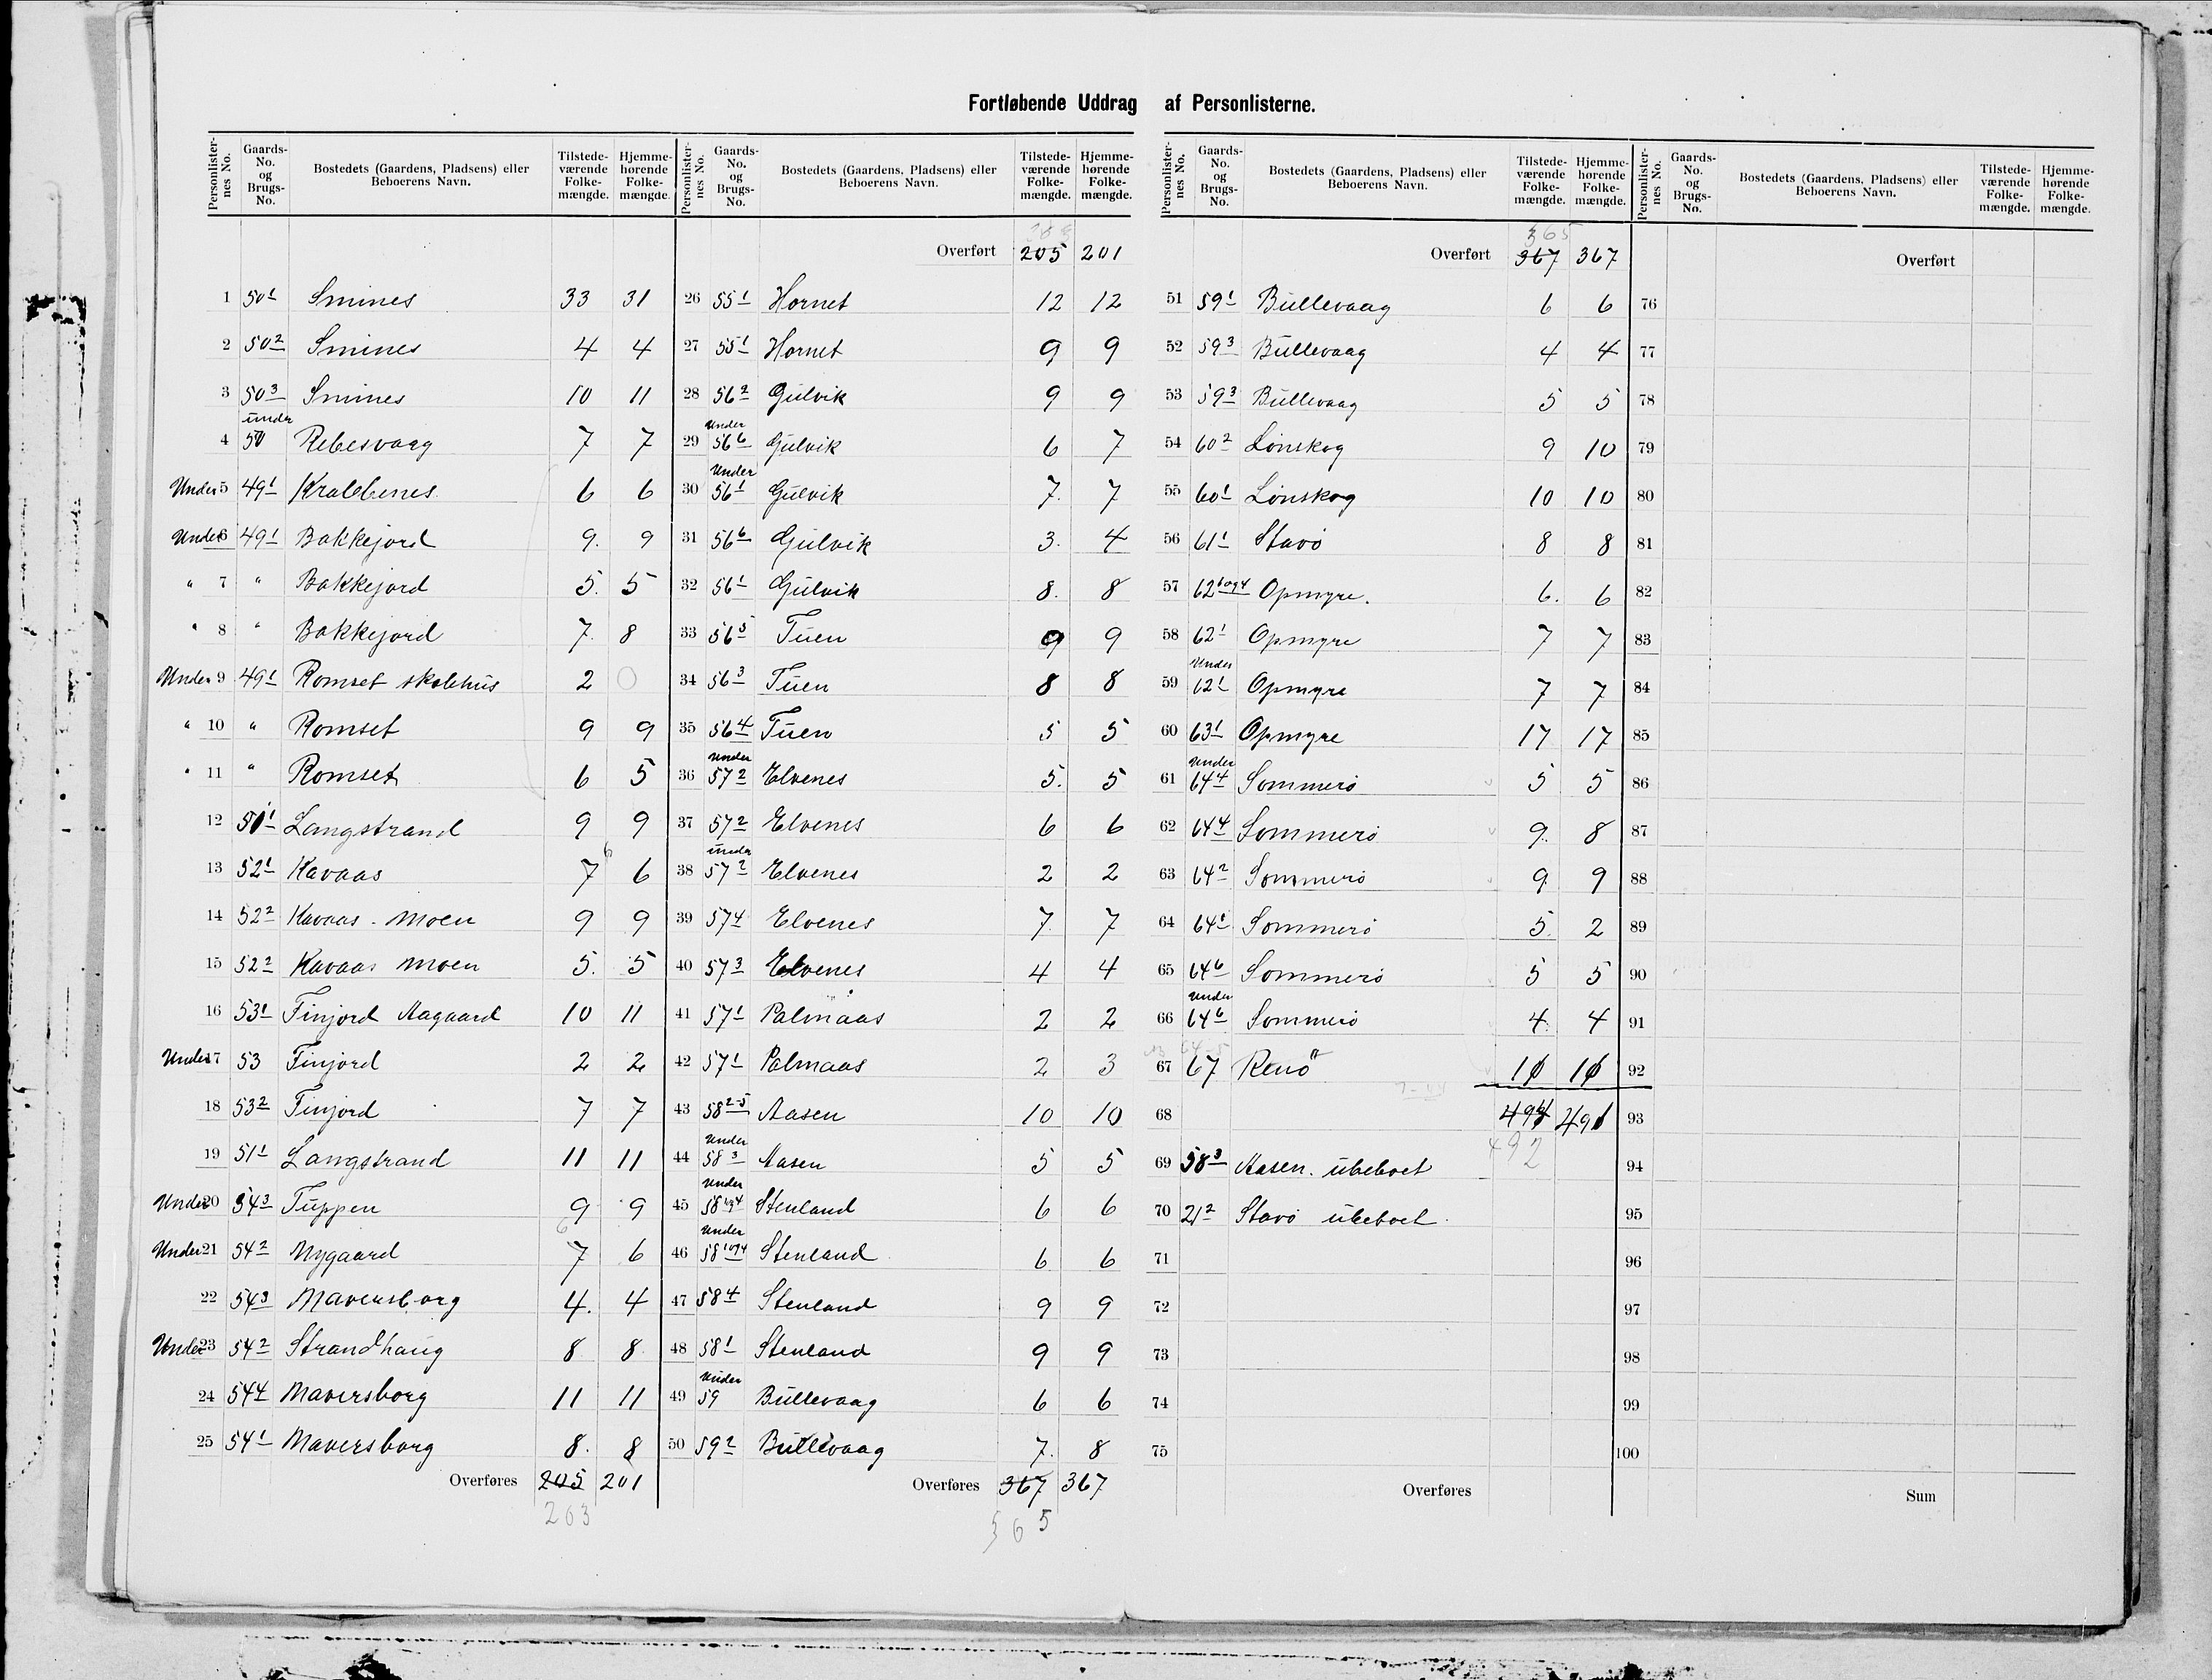 Fortløbende Uddrag af Personlisterne.
Personlister-nes No. Gaards-No. og Brugs-No. Bostedets (Gaardens, Pladsens) eller Beboerens Navn. Tilstede-værende Folke-mængde. Hjemme-hørende Folke-mængde.
1 50¹ Smines 33 31
2 50² Smines 4 4
3 50³ Smines 10 11
4 under 50 Rebesvaag 7 7
Under 5 49¹ Krabbenes 6 6
Under 6 49¹ Bakkejord 9. 9
" 7 " Bakkejord 5. 5
" 8 " Bakkejord 7. 8
Under 9 49¹ Romset skolehus 2 0
" 10 " Romset 9 9
" 11 " Romset 6 5
12 51¹ Langstrand 9 9
13 52¹ Kavaas 7 6 6
14 52² Kavaas - Moen 9 9
15 52² Kavaas Moen 5. 5
16 53¹ Finjord Aagaard 10 11
Under 17 53 Finjord 2 2
18 53² Finjord 7 7
19 51¹ Langstrand 11 11
Under 20 54³ Tuppen 9 9
Under 21 54² Nygaard 6 7 6
22 54³ Maversborg 4. 4
Under 23 54² Strandhaug 8 8
24 54⁴ Maversborg 11 11
25 54¹ Maversborg 8. 8
Overføres 205 201
203
Personlister-nes No. Gaards-No. og Brugs-No. Bostedets (Gaardens, Pladsens) eller Beboerens Navn. Tilstede-værende Folke-mængde. Hjemme-hørende Folke-mængde.
Overført 205 201
26 55¹ Hornet 12 12
27 55¹ Hornet 9 9
28 56² Gulvik 9 9
29 Under 56⁶ Gulvik 6 7
30 Under 56¹ Gulvik 7. 7
31 56⁶ Gulvik 3. 4
32 56¹ Gulvik 8. 8
33 56⁵ Tuen 9 9
34 56³ Tuen 8 8
35 56⁴ Tuen 5 5
36 Under 57² Elvenes 5. 5
37 57² Elvenes 6 6
38 under 57² Elvenes 2 2
39 57⁴ Elvenes 7. 7
40 57³ Elvenes 4 4
41 57¹ Palmaas 2 2
42 57¹ Palmaas 2 3
43 58²⁻⁵ Aasen 10 10
44 Under 58³ Aasen 5 5
45 Under 58¹ᵒᵍ⁴ Stenland 6 6
46 Under 58¹ᵒᵍ⁴ Stenland 6 6
47 58⁴ Stenland 9 9
48 58¹ Stenland 9 9
49 Under 59 Bullevaag 6 6
50 59² Bullevaag 7. 8
Overføres 367 367
365
Personlister-nes No. Gaards-No. og Brugs-No. Bostedets (Gaardens, Pladsens) eller Beboerens Navn. Tilstede-værende Folke-mængde. Hjemme-hørende Folke-mængde.
365
Overført 367 367
51 59¹ Bullevaag 6 6
52 59³ Bullevaag 4 4
53 59³ Bullevaag 5 5
54 60² Lönskog 9 10
55 60¹ Lönskog 10 10
56 61¹ Stavö 8 8
57 62⁶ᵒᵍ⁴ Opmyre. 6. 6
58 62¹ Opmyre 7 7
59 Under 62¹ Opmyre 7 7
60 63¹ Opmyre 17 17
61 Under 64⁴ Sommerö 5 5
62 64⁴ Sommerö 9. 8
63 64² Sommerö 9 9
64 64¹ Sommerö 5. 2
65 64⁶ Sommerö 5 5
66 Under 64⁶ Sommerö 4. 4
67 67 Renö
68 491
492
69 58³ Aasen. ubeboet
70 21² Stavö ubeboet.
71
72
73
74
75
Overføres
Personlister-nes No. Gaards-No. og Brugs-No. Bostedets (Gaardens, Pladsens) eller Beboerens Navn. Tilstede-værende Folke-mængde. Hjemme-hørende Folke-mængde.
Overført
76
77
78
79
80
81
82
83
84
85
86
87
88
89
90
91
92
93
94
95
96
97
98
99
100
Sum